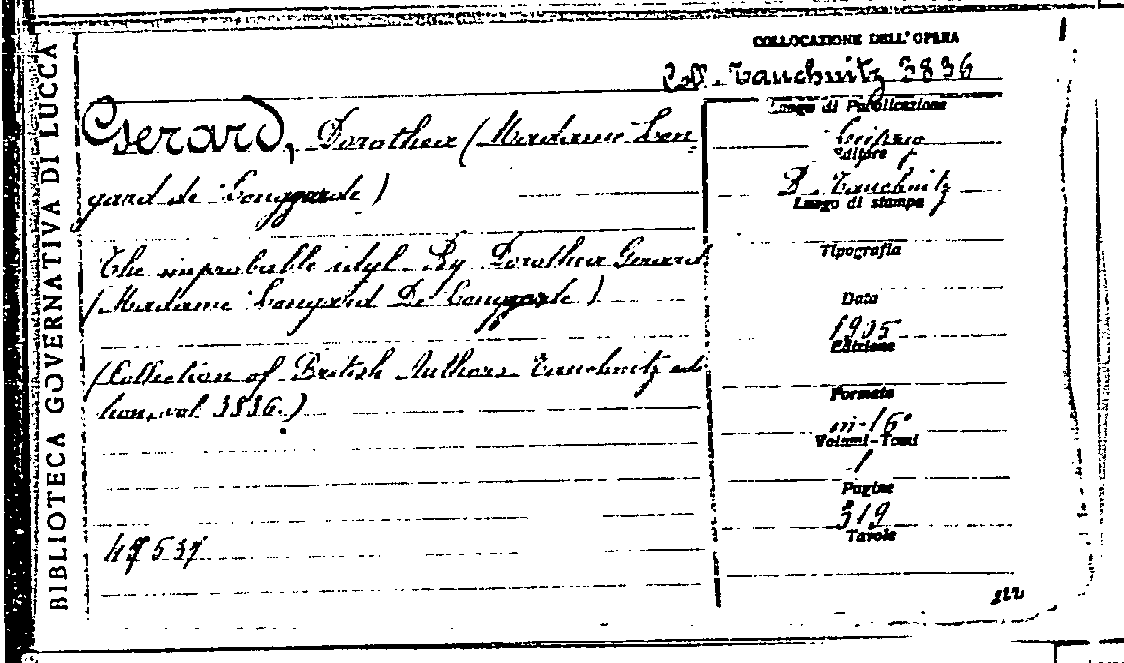 BIBLIOTECA GOVERNATIVA DI LUCCA
COLLOCAZIONE DELL'OPERA
Coll. Tauchnitz 3836
Gerard, Dorothea (Madame Lon-
gard de Longgarde)
The improbable idyl. By Dorothea Gerard
(Madame Longard De Longgarde)
(Collection of British Authors Tauchnitz edi-
tion, vol. 3836.)
Luogo di Pubblicazione
Leipzig
Editore
B. Tauchnitz
Luogo di stampa
Tipografia
Data
1905
Edizione
Formato
in-16°
Volumi-Tomi
1
Pagine
319
Tavole